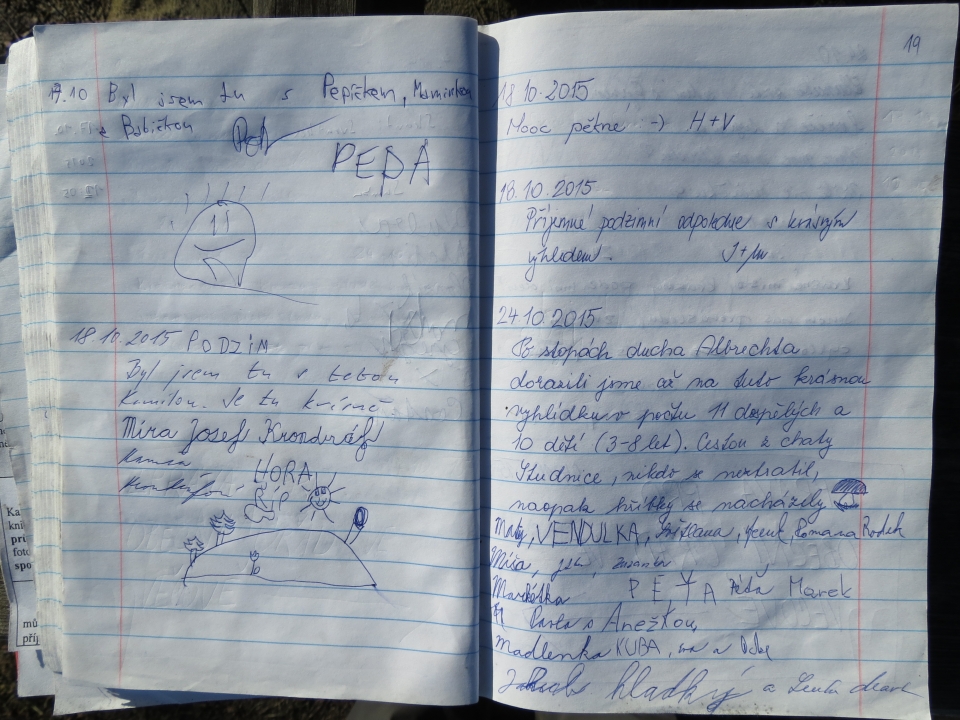 17.10 Byl jsem tu s Pepíčkem, Maminkou
a Babičkou
PEĎA
18.10.2015 PODZIM
Byl jsem tu s tetou
Kamilou. Je tu krásně.
Míra Josef Krondráf
HORA
19
18.10.2015
Mooc pěkné -> H+V
18.10.2015
Příjemné podzimní odpoledne s krásným
výhledem.
24.10.2015
Po stopách ducha Albrechta
dorazili jsme až na tuto krásnou
vyhlídku v počtu 11 dospělých a
10 dětí (3-8 let). Cestou z chaty
Studnice, nikdo se neztratil,
naopak hříbky se nacházely
Maty, VENDULKA, Romana Radek
Míša, Zuzanka
Markétka PEŤA Péťa Marek
Pavla s Anežkou,
Madlenka KUBA,
hladký a Lenka